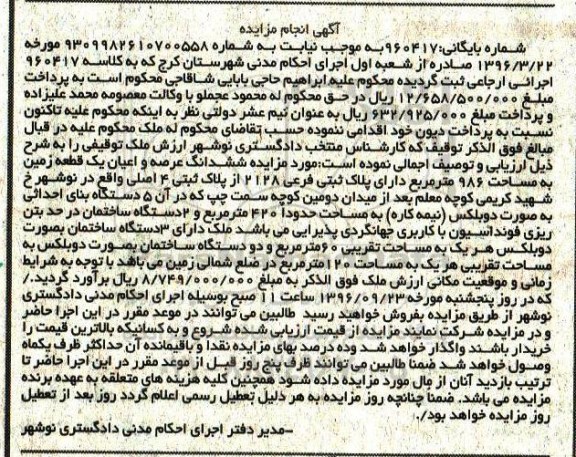 آگهی انجام مزایده
شماره بایگانی:۹۶۰۴۱۷به موجب نیابت به شماره ۹۳۰۹۹۸۲۶۱۰۷۰۰۵۵۸ مورخه
۱۳۹۶/۳/۲۲ صادره از شعبه اول اجرای احکام مدنی شهرستان کرج که به کلاسه ۹۶۰۴۱۷
اجرائی ارجاعی ثبت گردیده محکوم علیه ابراهیم حاجی بابایی شاقاجی محکوم است به پرداخت
مبلغ ۱۲/۶۵۸/۵۰۰/۰۰۰ ریال در حق محکوم له محمود عجملو با وکالت معصومه محمد علیزاده
و پرداخت مبلغ ۶۳۲/۹۲۵/۰۰۰ ریال به عنوان نیم عشر دولتی نظر به اینکه محکوم علیه تاکنون
نسبت به پرداخت دیون خود اقدامی ننموده حسب تقاضای محکوم له ملک محکوم علیه در قبال
مبلغ فوق الذکر توقیف که کارشناس منتخب دادگستری نوشهر ارزش ملک توقیفی را به شرح
ذیل ارزیابی و توصیف اجمالی نموده است:مورد مزایده ششدانگ عرصه و اعیان یک قطعه زمین
به مساحت ۹۸۶ مترمربع دارای پلاک ثبتی فرعی ۲۱۲۸ از پلاک ثبتی ۴ اصلی واقع در نوشهر خ
شهید کریمی کوچه معلم بعد از میدان دومین کوچه سمت چپ که در آن ۵ دستگاه بنای احداثی
به صورت دوبلکس (نیمه کاره) به مساحت حدودا ۴۲۰ مترمربع و ۲دستگاه ساختمان در حد بتن
ریزی فونداسیون با کاربری جهانگردی پذیرایی می باشد. ملک دارای ۳دستگاه ساختمان بصورت
دوبلکس هر یک به مساحت تقریبی ۶۰مترمربع و دو دستگاه ساختمان بصورت دوبلکس به
مساحت تقریبی هر یک به مساحت ۱۲۰مترمربع در ضلع شمالی زمین می باشد با توجه به شرایط
زمانی و موقعیت مکانی ارزش ملک فوق الذکر به مبلغ ۸/۷۴۹/۰۰۰/۰۰۰ ریال برآورد گردید./
که در روز پنجشنبه مورخه ۱۳۹۶/۰۹/۲۳ ساعت ۱۱ صبح بوسیله اجرای احکام مدنی دادگستری
نوشهر از طریق مزایده بفروش خواهد رسید طالبین می توانند در موعد مقرر در این اجرا حاضر
و در مزایده شرکت نمایند مزایده از قیمت ارزیابی شده شروع و به کسانیکه بالاترین قیمت را
خریدار باشند واگذار خواهد شد وده درصد بهای مزایده نقدا و باقیمانده آن حداکثر ظرف یکماه
وصول خواهد شد ضمنا طالبین می توانند ظرف پنج روز قبل از موعد مقرر در این اجرا حاضر تا
ترتیب بازدید آنان از مال مورد مزایده داده شود همچنین کلیه هزینه های متعلقه به عهده برنده
مزایده می باشد. ضمنا چنانچه روز مزایده به هر دلیل تعطیل رسمی اعلام گردد روز بعد از تعطیل
روز مزایده خواهد بود./
-مدیر دفتر اجرای احکام مدنی دادگستری نوشهر